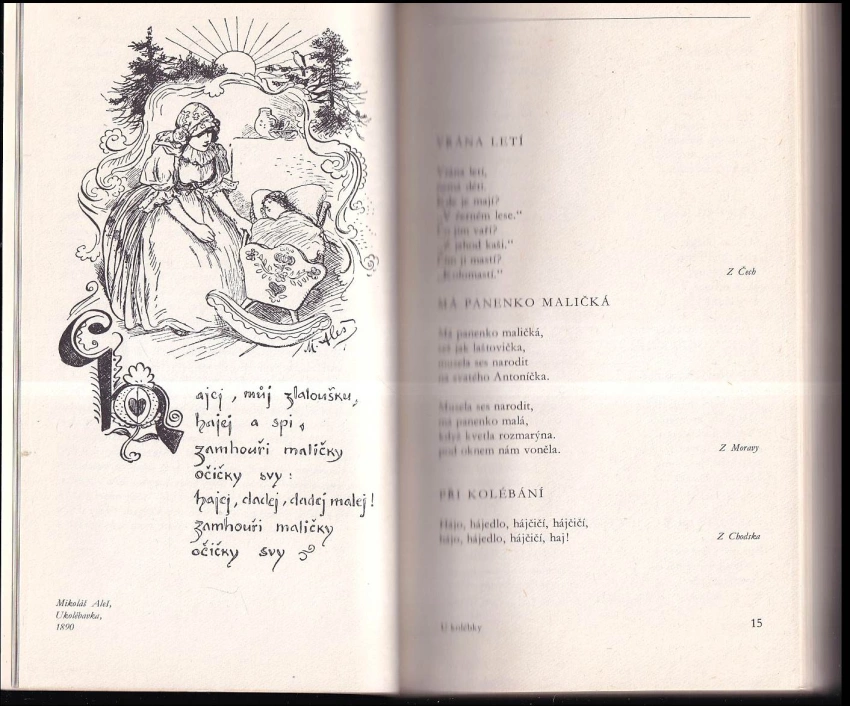 M. Aleš
Hajej, můj zlatoušku,
hajej a spi,
zamhouři maličky
očičky svy:
hajej, dadej, dadej malej!
zamhouři maličky
očičky svy
Mikoláš Aleš,
Ukolébavka,
1890
VRÁNA LETÍ
Vrána letí,
nemá děti.
Kde je mají?
„V černém lese.“
Co jim vaří?
„Z jahod kaši.“
Čím ji mastí?
„Kolomastí.“
Z Čech
MÁ PANENKO MALIČKÁ
Má panenko maličká,
jak laštovička,
musela ses narodit
na svatého Antoníčka.
Musela ses narodit,
má panenko malá,
když kvetla rozmarýna.
pod oknem nám voněla.
Z Moravy
PŘI KOLÉBÁNÍ
Hajo, hájedlo, hájčičí, hájčičí,
hájo, hájedlo, hájčičí, haj!
Z Chodska
U kolébky
15